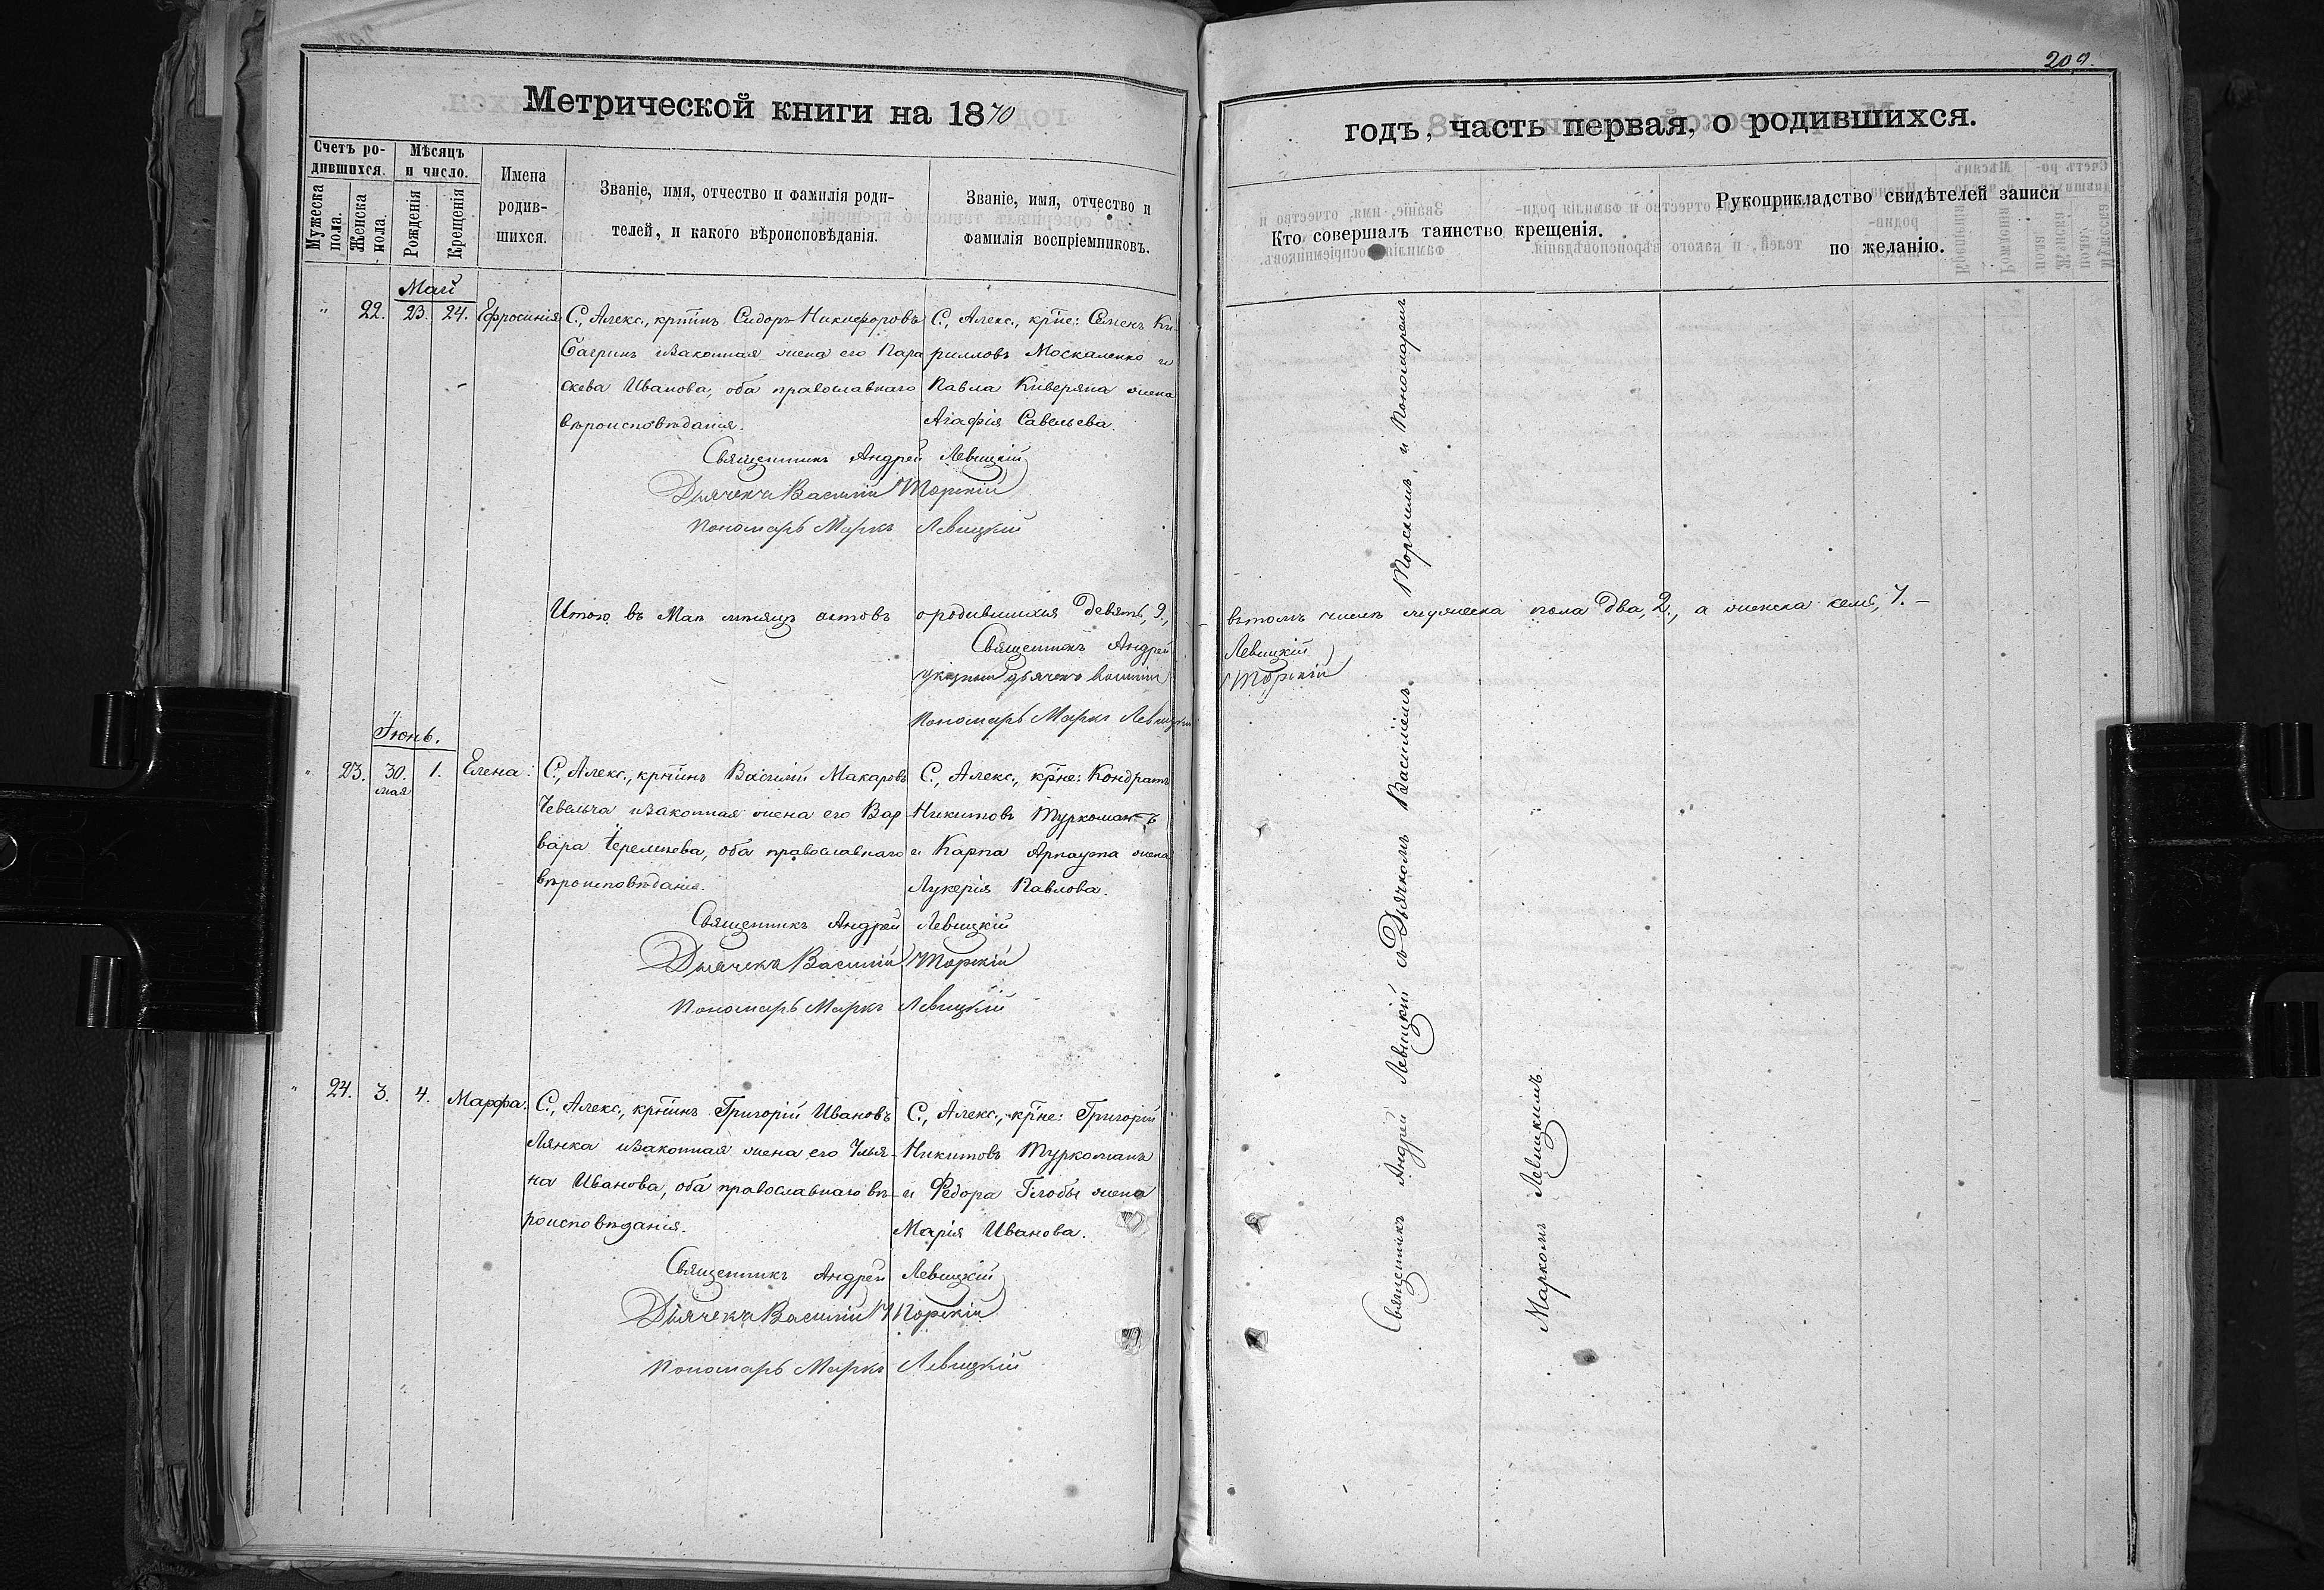 209.
Метрической книги на 1870
годъ, часть первая, о родившихся.
Счетъ ро-
дившихся.
Мѣсяцъ
и число.
Мужеска
пола.
Женска
пола.
Рожденія
Крещенія
Имена
родив-
шихся.
Званіе, имя, отчество и фамилія роди-
телей, и какого вѣроисповѣданія.
Званіе, имя, отчество и
фамилія воспріемниковъ.
Кто совершалъ таинство крещенія.
Рукоприкладство свидѣтелей записи
по желанію.
Май
" 22. 23. 24. Ефросинія
С., Алекс., крт҃инъ Сидоръ Никифоровъ
Багринъ изаконная жена его Пара
скева Иванова, оба православнаго
вѣроисповѣданія.
С., Алекс., кр҃не: Семенъ Ки-
рилловъ Москаленко и
Павла Киверяна жена
Агафія Савельева.
Священникъ Андрей Левицкій
Дьячекъ Василій Торскій
Пономарь Маркъ Левицкій
Итого въ Маѣ мѣсяцѣ актовъ о родившихся девять, 9.,
втомъ числѣ мужеска пола два, 2., а женска семь, 7. –
Священникъ Андрей Левицкій
указный дьячекъ Василій Торскій
Пономарь Маркъ Левицкій
Іюнь.
" 23. 30. 1. Елена.
мая
С., Алекс., крт҃инъ Василій Макаровъ
Чебельча изаконная жена его Вар
вара Еремѣева, оба православнаго
вѣроисповѣданія.
С., Алекс., кр҃не: Кондратъ
Никитовъ Туркоманъ
и Карпа Арнаута жена
Лукерія Павлова.
Священникъ Андрей Левицкій
Дьячекъ Василій Торскій
Пономарь Маркъ Левицкій
" 24. 3. 4. Марфа.
С., Алекс., крт҃инъ Григорій Ивановъ
Лянка изаконная жена его Улья-
на Иванова, оба православнаго вѣ-
роисповѣданія.
С., Алекс., кр҃не: Григорій
Никитовъ Туркоманъ
и Федора Глобы жена
Марія Иванова.
Священникъ Андрей Левицкій
Дьячекъ Василій Торскій
Пономарь Маркъ Левицкій
Священникъ Андрей Левицкій съ Дьячкомъ Василіемъ Торскимъ, и Пономаремъ
Маркомъ Левицкимъ.